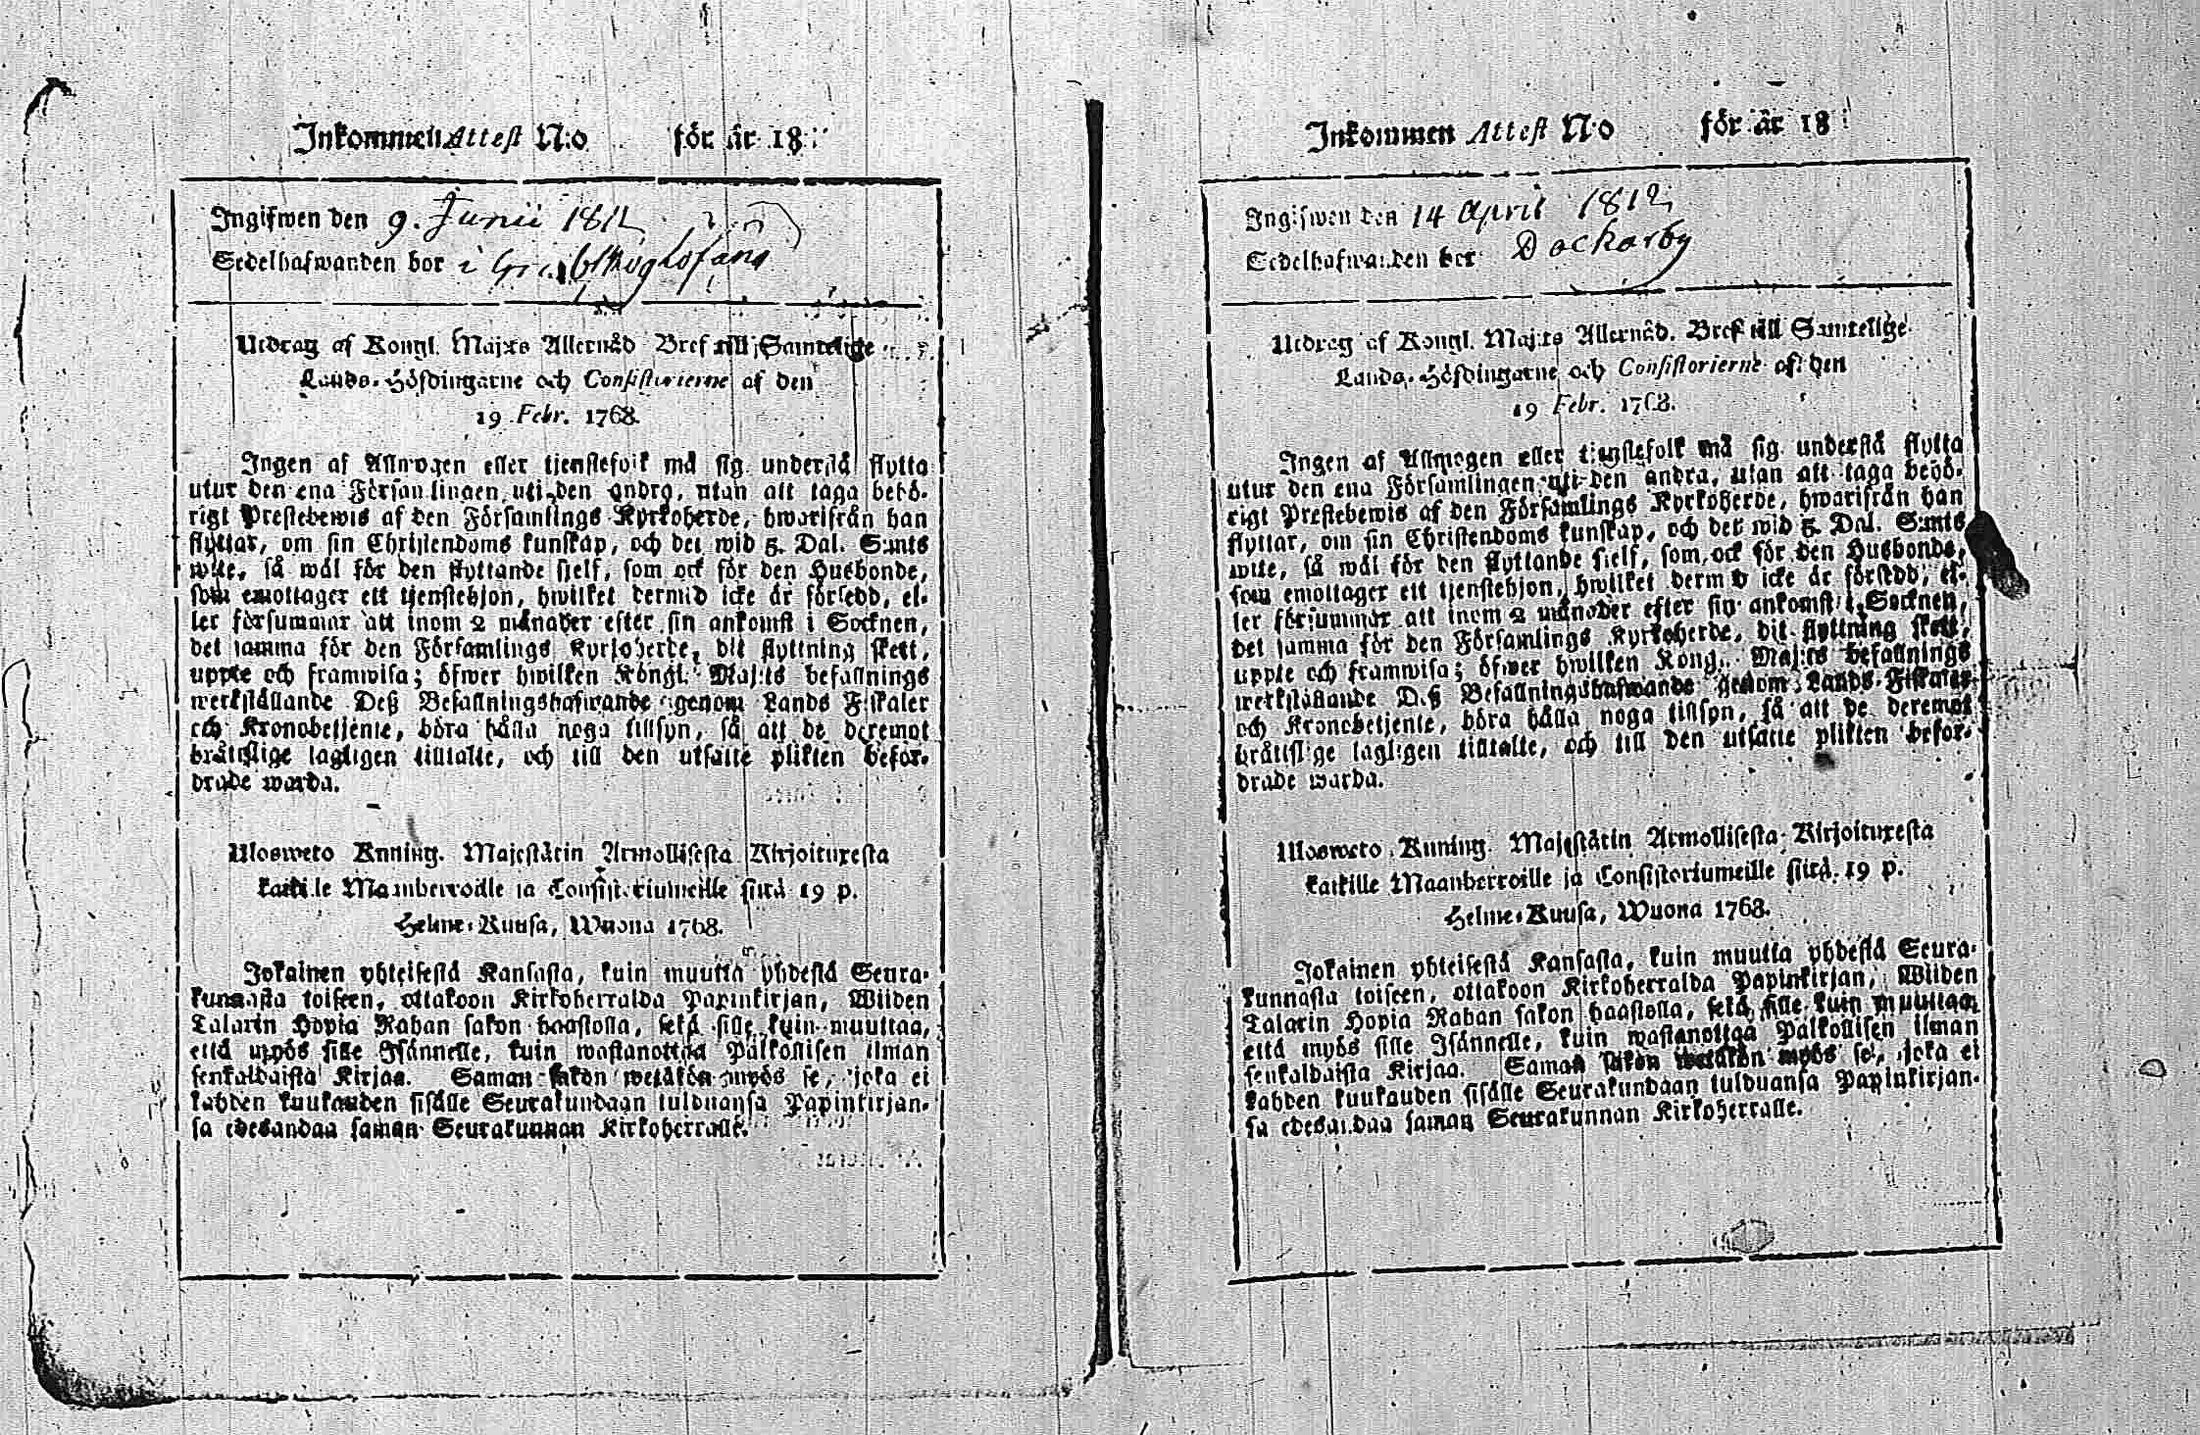 Inkommen Attest N:o för år 18
Ingifwen den 9. Junii 1812
Sedelhafwanden bor i
Utdrag af Kongl. Maj:ts Allernåd Bref till Samtelige
Lands-Höfdingarne och Consistorierne af den
19 Febr. 1768.
Ingen af Allmogen eller tjenstefolk må sig understå flytta
utur den ena Församlingen uti den andra, utan att taga behö-
rigt Prestebewis af den Församlings Kyrkoherde, hwarifrån han
flyttar, om sin Christendoms kunskap, och det wid 5. Dal. S:mts
wite, så wäl för den flyttande sjelf, som ock för den Husbonde,
som emottager ett tjenstehjon, hwilket dermed icke är försedd, el-
ler försummar att inom 2 månader efter sin ankomst i Socknen,
det samma för den Församlings Kyrkoherde, dit flyttning skett,
uppte och framwisa; öfwer hwilken Köngl. Maj:ts befallnings
werkställande Deß Befallningshafwande genom Lands Fiskaler
och Kronobetjente, böra hålla noga tillsyn, så att de deremot
bråttslige lagligen tilltalte, och till den utsatte plikten beför-
drade warda.
Ulosweto Kuning. Majestätin Armollisesta Kirjoituxesta
kaikille Maanherroille ja Consistoriumeille siitä 19 p.
Helme-Kuusa, Wuona 1768.
Jokainen yhteisestä Kansasta, kuin muutta yhdestä Seura-
kunnasta toiseen, ottakoon Kirkoherralda Papinkirjan, Wiiden
Talarin Hopia Rahan sakon haastolla, sekä sille kuin muuttaa,
että myös sille Isännelle, kuin wastanottaa Palkollisen ilman
senkaldaista Kirjaa. Saman sakon wetäkön myös se, joka ei
kahden kuukauden sisälle Seurakundaan tulduansa Papinkirjan-
sa edesandaa saman Seurakunnan Kirkoherralle.
Inkommen Attest N:o för år 18
Ingifwen den 14 April 1812
Sedelhafwanden bor Dackarby
Utdrag af Kongl. Maj:ts Allernåd. Bref till Samtelige
Lands-Höfdingarne och Consistorierne af den
19 Febr. 1768.
Ingen af Allmogen eller tjenstefolk må sig understå flytta
utur den ena Församlingen uti den andra, utan att taga behö-
rigt Prestebewis af den Församlings Kyrkoherde, hwarifrån han
flyttar, om sin Christendoms kunskap, och det wid 5. Dal. S:mts
wite, så wäl för den flyttande sjelf, som ock för den Husbonde,
som emottager ett tjenstehjon, hwilket dermed icke är försedd, el-
ler försummar att inom 2 månader efter sin ankomst i Socknen,
det samma för den Församlings Kyrkoherde, dit flyttning skett,
uppte och framwisa; öfwer hwilken Kongl. Maj:ts befallnings
werkställande Deß Befallningshafwande genom Lands Fiskaler
och Kronobetjente, böra hålla noga tillsyn, så att de deremot
bråttslige lagligen tilltalte, och till den utsatte plikten beför-
drade warda.
Ulosweto Kuning. Majestätin Armollisesta Kirjoituxesta
kaikille Maanherroille ja Consistoriumeille siitä 19 p.
Helme-Kuusa, Wuona 1768.
Jokainen yhteisestä Kansasta, kuin muutta yhdestä Seura-
kunnasta toiseen, ottakoon Kirkoherralda Papinkirjan, Wiiden
Talarin Hopia Rahan sakon haastolla, sekä sille kuin muuttaa
että myös sille Isännelle, kuin wastanottaa Palkollisen ilman
senkaldaista Kirjaa. Saman sakon wetäkön myös se, joka ei
kahden kuukauden sisälle Seurakundaan tulduansa Papinkirjan-
sa edesandaa saman Seurakunnan Kirkoherralle.